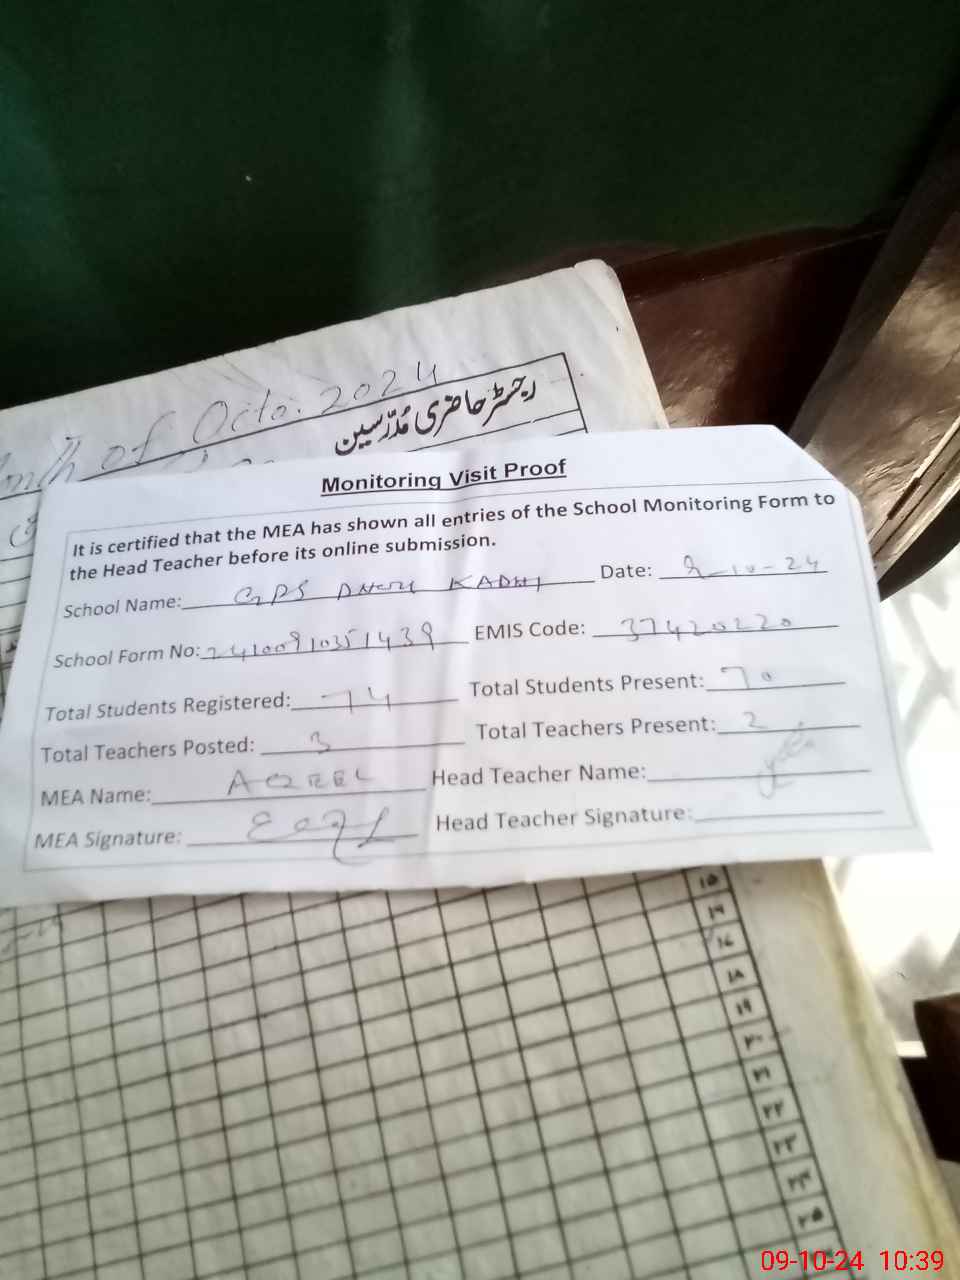 of Octo. 2024
رجسٹر حاضری مُدرّسین
Monitoring Visit Proof
It is certified that the MEA has shown all entries of the School Monitoring Form to
the Head Teacher before its online submission.
School Name: GPS KADHI Date: 9-10-24
School Form No: EMIS Code: 37420220
Total Students Registered: 74 Total Students Present: 70
Total Teachers Posted: 3 Total Teachers Present: 2
MEA Name: AQEEL Head Teacher Name:
MEA Signature: Head Teacher Signature:
۱۵
۱۶
۱۸
۱۹
۲۰
۲۱
۲۲
۲۳
۲۴
۲۵
09-10-24 10:39